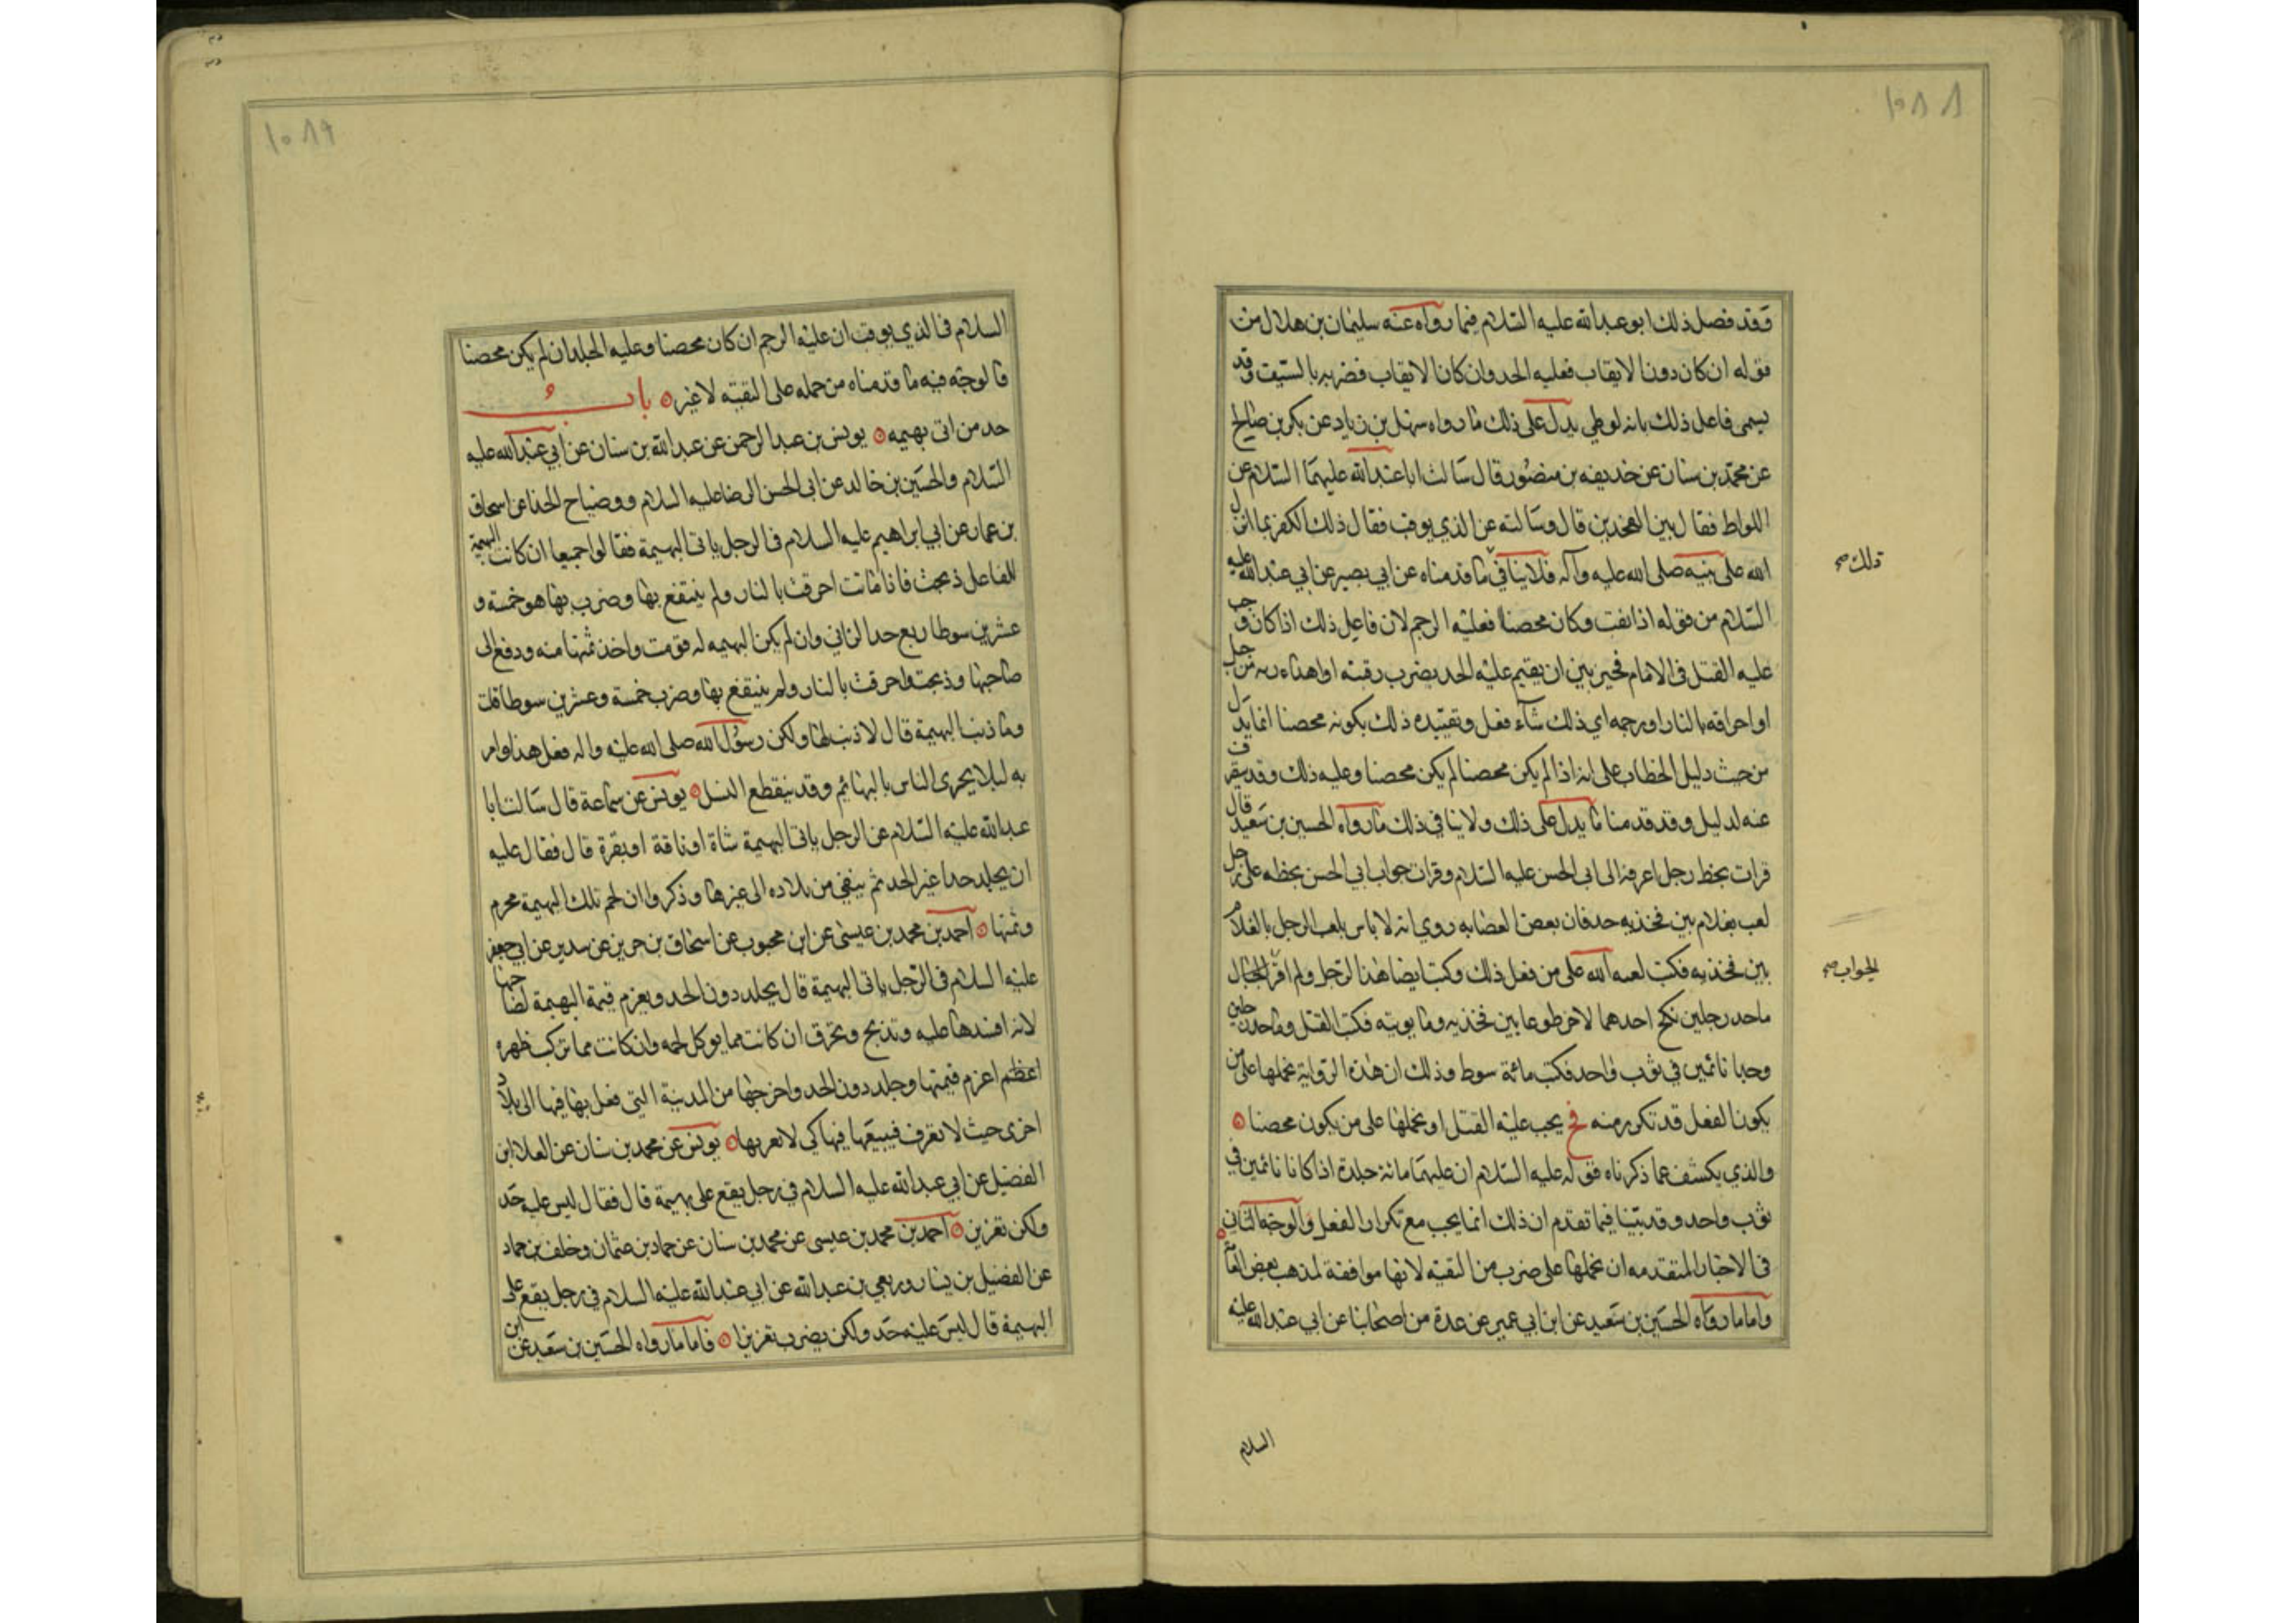 ١٠٨٨
وقد فصل ذلك ابو عبد الله عليه السلام فيما رواه عنه سليمان بن هلال من
قوله ان كان دون الايقاب فعليه الحد وان كان الايقاب فضربه بالسيف وقد
يسمى فاعل ذلك بانه لوطي يدل على ذلك ما رواه سهل بن زياد عن بكر بن صالح
عن محمد بن سنان عن حذيفه بن منصور قال سالت ابا عبد الله عليهما السلام عن
اللواط فقال بين الفخذين قال وسالته عن الذي يوقب فقال ذلك الكفر بما انزل
الله على نبيه صلى الله عليه وآله فلا ينافي ما قدمناه عن ابي بصير عن ابي عبد الله عليه
ذلك صح
السلام من قوله اذا نقب وكان محصنا فعليه الرجم لان فاعل ذلك اذا كان وجب
عليه القتل فى الامام مخير بين ان يقيم عليه الحد بضرب رقبته او اهداءه من جبل
او احراقه بالنار او رجمه اي ذلك شآء فعل وتقييده ذلك بكونه محصنا انما يدل
من حيث دليل الخطاب على انه اذا لم يكن محصنا لم يكن محصنا وعليه ذلك وقد ينصرف
عنه لدليل وقد قدمنا ما يدل على ذلك ولا ينافي ذلك ما رواه الحسين بن سعيد قال
قرات بخط رجل اعرفه الى ابى الحسن عليه السلام وقرات جواب ابي الحسن بخطه على رجل
لعب بغلام بين فخذيه حد فان بعض العصابه روي انه لا باس بلعب الرجل بالغلام
بين فخذيه فكتب لعنه الله على من فعل ذلك وكتب ايضا هذا الرجل ولم اقر الجواب
الجواب صح
ما حد رجلين نكح احدهما الاخر طوعا بين فخذيه وما توبته فكتب القتل وما حد رجلين
وجدا نائمين في ثوب واحد فكتب مائة سوط وذلك ان هذه الرواية نحملها على من
يكون الفعل قد تكور منه فح يجب عليه القتل او نحملها على من يكون محصنا
والذي يكشف عما ذكرناه قوله عليه السلام ان عليهما مائة جلدة اذا كانا نائمين في
ثوب واحد وقد بيّنا فيما تقدم ان ذلك انما يجب مع تكرار الفعل والوجه الثانى
فى الاخبار المتقدمه ان نحملها على ضرب من التقيه لانها موافقة لمذهب بعض العامة
واما ما رواه الحسين بن سعيد عن ابن ابي عمير عن عدة من اصحابنا عن ابي عبد الله عليه
السلام
١٠٨٩
السلام فى الذي يوقب ان عليه الرجم ان كان محصنا وعليه الجلد ان لم يكن محصنا
فالوجه فيه ما قدمناه من حمله على التقيه لا غير باب
حد من اتى بهيمه يونس بن عبد الرحمن عن عبد الله بن سنان عن ابي عبد الله عليه
السلام والحسين بن خالد عن ابى الحسن الرضا عليه السلام وصباح الحذا عن اسحاق
بن عمار عن ابي ابراهيم عليه السلام فى الرجل ياتى البهيمة فقالوا جميعا ان كانت البهيمة
للفاعل ذبحت فاذا ماتت احرقت بالنار ولم ينتفع بها وضرب بها هو خمسة و
عشرين سوطا ربع حد الزاني وان لم يكن البهيمه له قومت واخذ ثمنها منه ودفع الى
صاحبها وذبحت واحرقت بالنار ولم ينتفع بها وضرب خمسة وعشرين سوطا قلت
وما ذنب البهيمة قال لا ذنب لها ولكن رسول الله صلى الله عليه واله فعل هذا وامر
به ليلا يجرى الناس بالبهائم وقد ينقطع النسل يونس عن سماعة قال سالت ابا
عبد الله عليه السلام عن الرجل ياتى البهيمة شاة او ناقة او بقرة قال فقال عليه
ان يجلد حدا غير الحد ثم ينفى من بلاده الى غيرها وذكروا ان لحم تلك البهيمة محرم
وثمنها احمد بن محمد بن عيسى عن ابن محبوب عن اسحاق بن جرير عن سدير عن ابي جعفر
عليه السلام فى الرجل ياتى البهيمة قال يجلد دون الحد ويغرم قيمة البهيمة لصاحبها
لانه افسدها عليه وتذبح وتحرق ان كانت مما يوكل لحمه وان كانت مما تركب ظهره
اغظم اغرم قيمتها وجلد دون الحد واخرجها من المدينة التي فعل بها فيها الى بلاد
اخرى حيث لا تعرف فيبيعها فيها كي لا يعير بها يونس عن محمد بن سنان عن العلا ابن
الفضيل عن ابي عبد الله عليه السلام في رجل يقع على بهيمة قال فقال ليس عليه حد
ولكن تعزير احمد بن محمد بن عيسى عن محمد بن سنان عن حماد بن عثمان وخلف بن حماد
عن الفضيل بن يسار وربعي بن عبد الله عن ابي عبد الله عليه السلام في رجل يقع على
البهيمة قال ليس عليه حد ولكن يضرب تعزيرا فاما ما رواه الحسين بن سعيد عن ابن